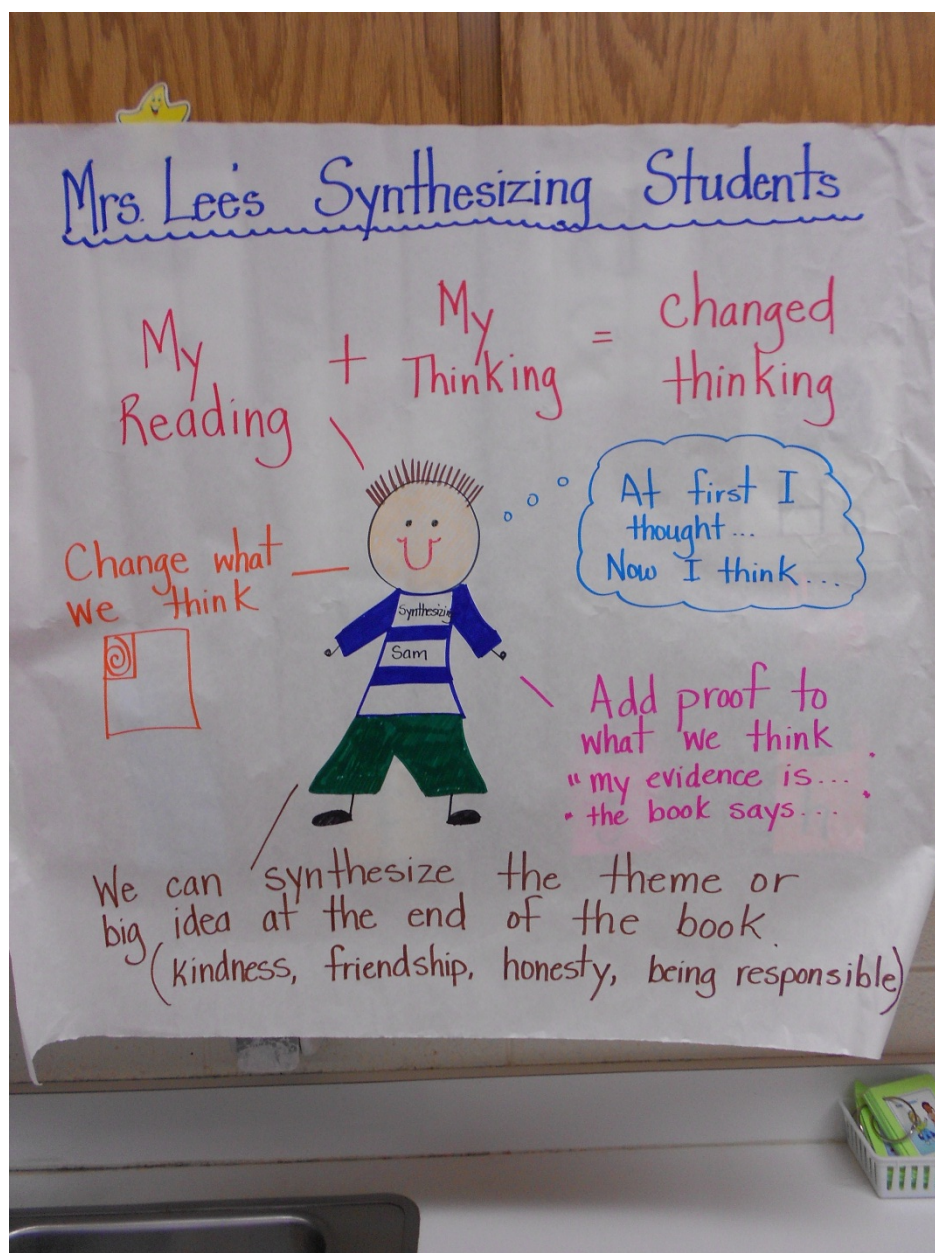 Mrs. Lee's Synthesizing Students
My
Reading
+
My
Thinking
=
Changed
thinking
At first I
thought...
Now I think...
Change what
we think
Synthesizing
Sam
Add proof to
what we think
"my evidence is...
" the book says...
We can synthesize the theme or
big idea at the end of the book.
(kindness, friendship, honesty, being responsible)